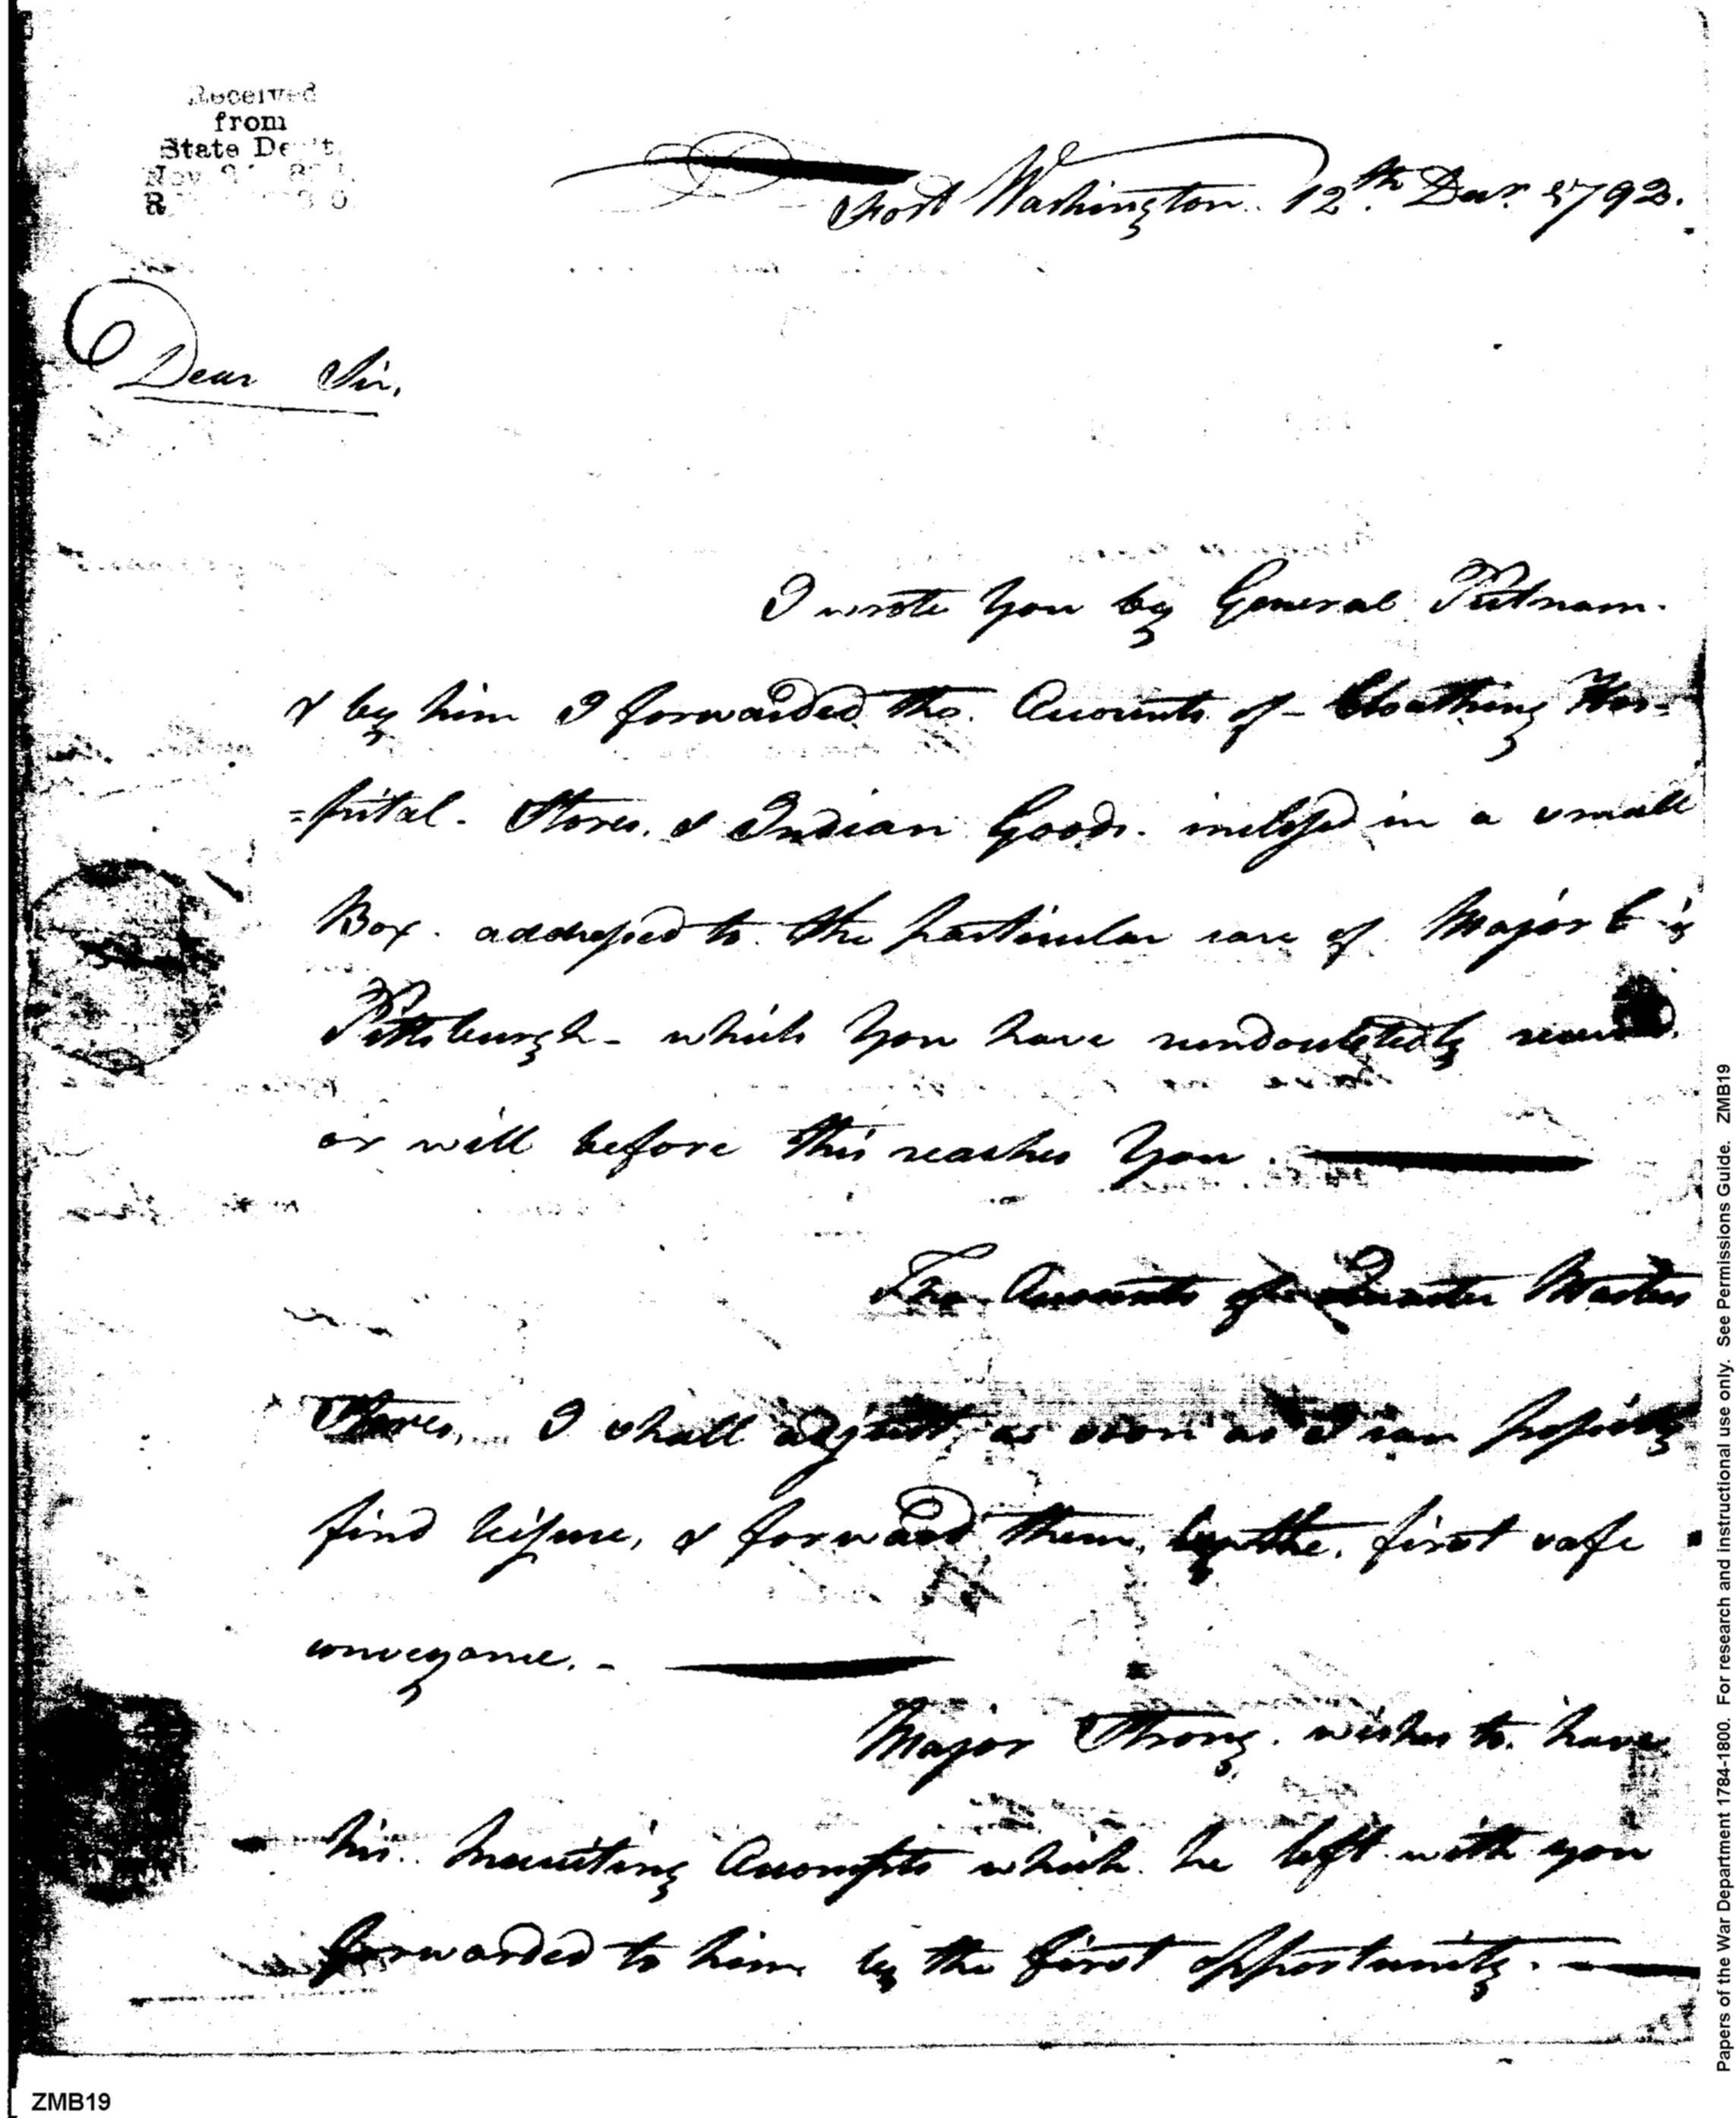 Received
from
State Dep't
Fort Washington 12th Decr. 1792.
Dear Sir,
I wrote You by General Putnam.
& by him I forwarded the Accounts of Cloathing Hos-
=pital Stores, & Indian Goods. inclosed in a small
Box. addressed to the particular care of Major C
Pittsburgh - which You have undoubtedly
or will before this reaches You.
The Accounts of Quarter Masters
Stores, I shall adjust, as soon as I can possibly
find leisure, & forward them, by the first safe
conveyance. -
Major Strong wishes to have
his Recruiting Accompts which he left with you
forwarded to him by the first opportunity. -
ZMB19
Papers of the War Department 1784-1800. For research and instructional use only. See Permissions Guide. ZMB19